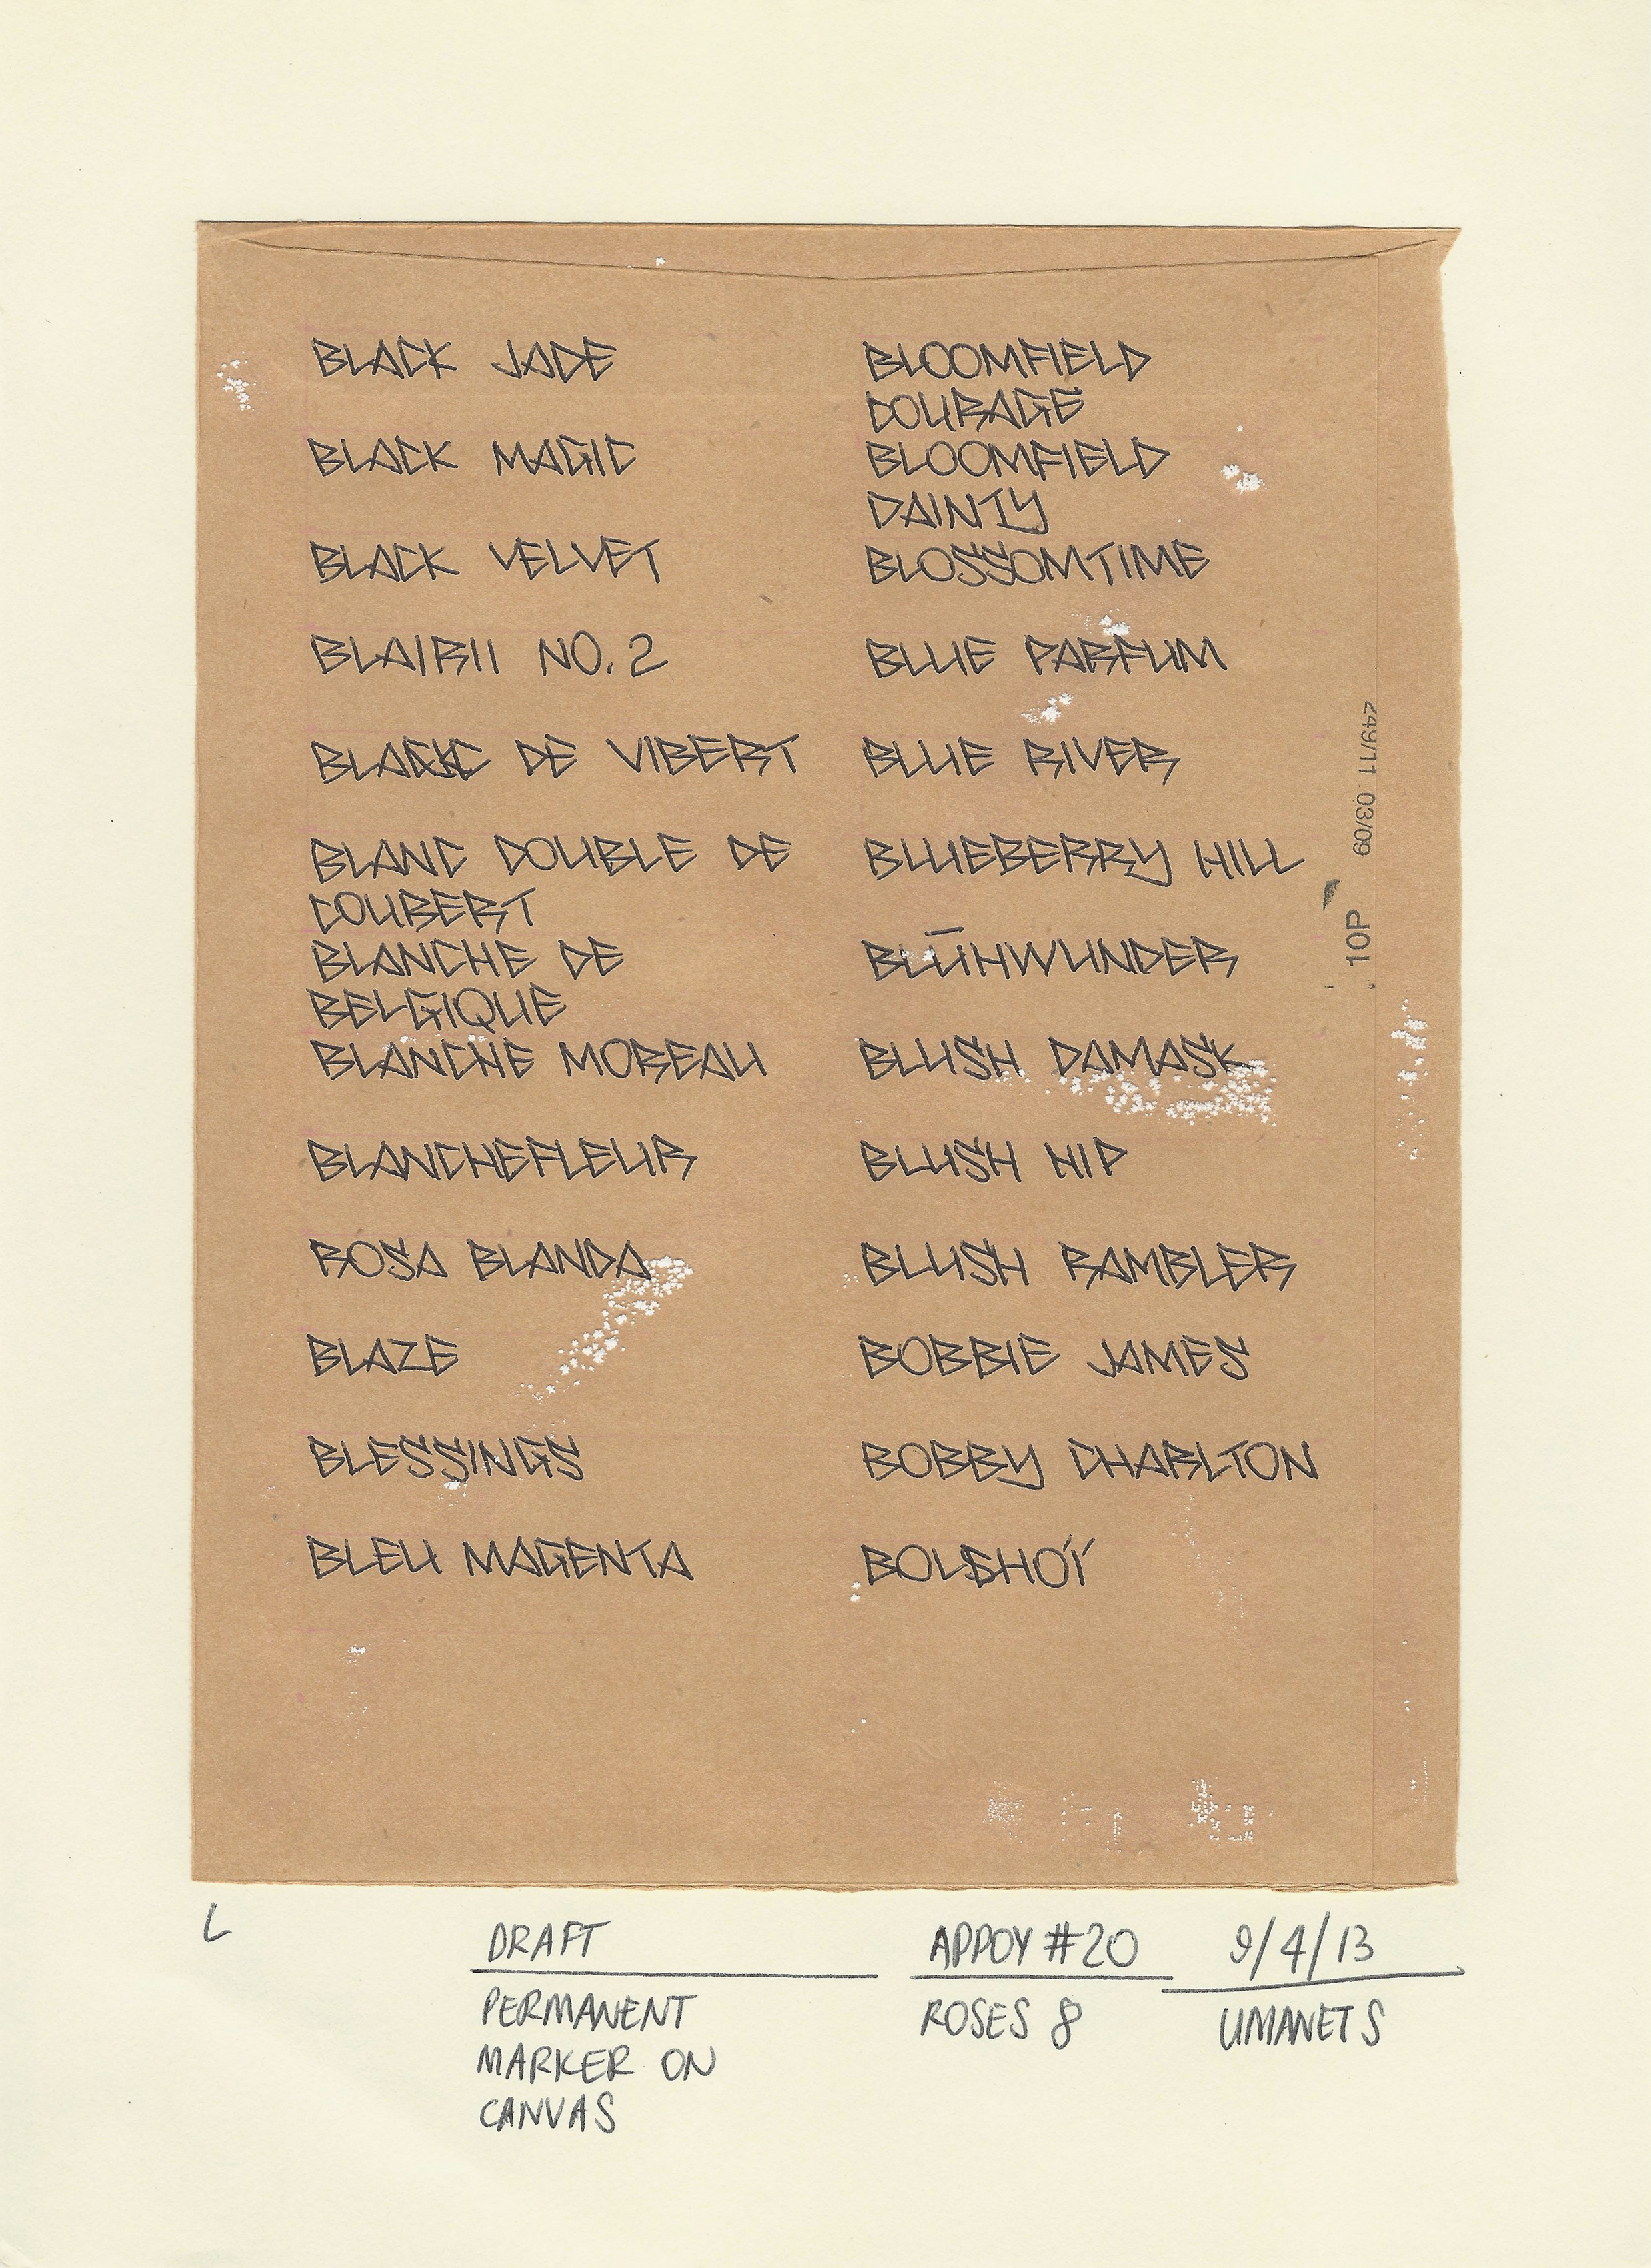 BLACK JADE
BLACK MAGIC
BLACK VELVET
BLAIRII NO. 2
BLANC DE VIBERT
BLANC DOUBLE DE
COUBERT
BLANCHE DE
BELGIQUE
BLANCHE MOREAU
BLANCHEFLEUR
ROSA BLANDA
BLAZE
BLESSINGS
BLEU MAGENTA
BLOOMFIELD
COURAGE
BLOOMFIELD
DAINTY
BLOSSOMTIME
BLUE PARFUM
BLUE RIVER
BLUEBERRY HILL
BLŪHWUNDER
BLUSH DAMASK
BLUSH HIP
BLUSH RAMBLER
BOBBIE JAMES
BOBBY CHARLTON
BOLSHOÏ
249/11 03/09
10P
L
DRAFT
PERMANENT
MARKER ON
CANVAS
APPOY #20
ROSES 8
9/4/13
UMANETS